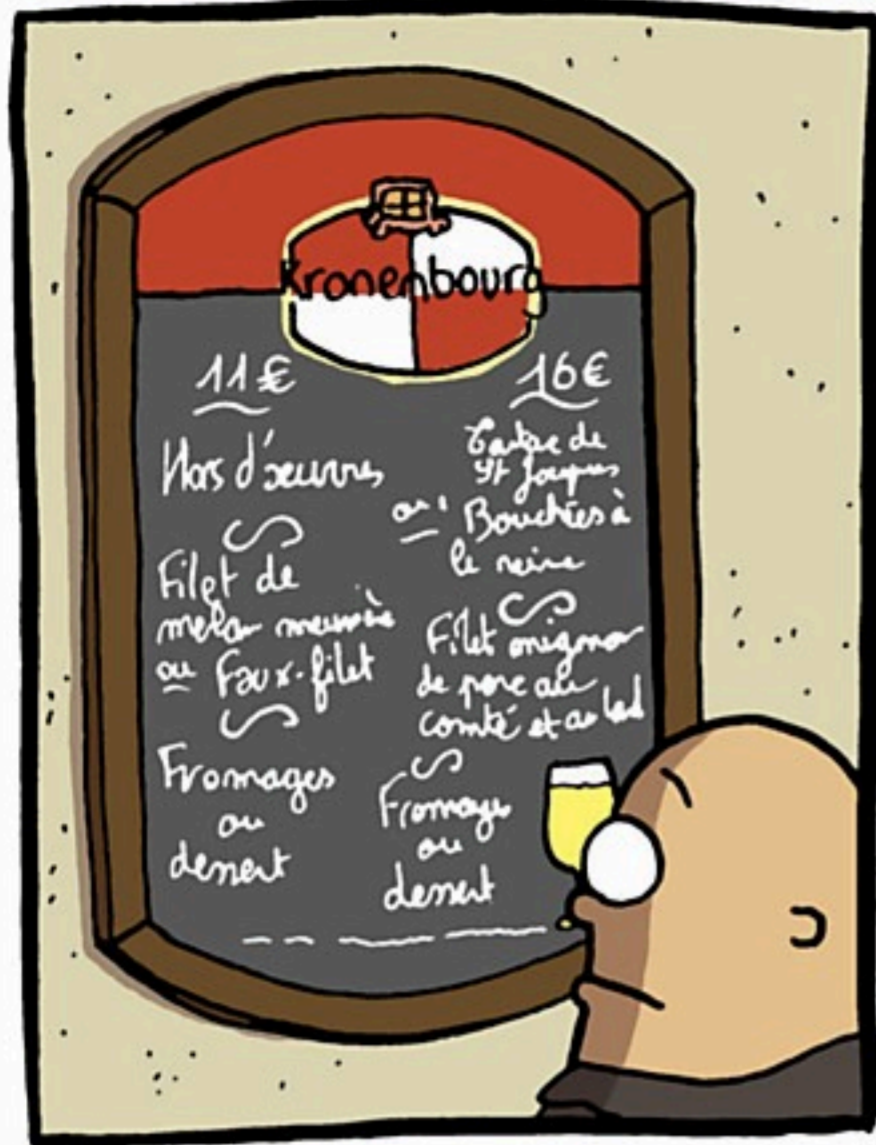 Kronenbourg
11€
Hors d'œuvres
Filet de
meunière
ou Faux-filet
Fromages
ou
dessert
16€
St Jacques
ou Bouchées à
la reine
Filet mignon
de porc au
comté et au lard
Fromages
ou
dessert